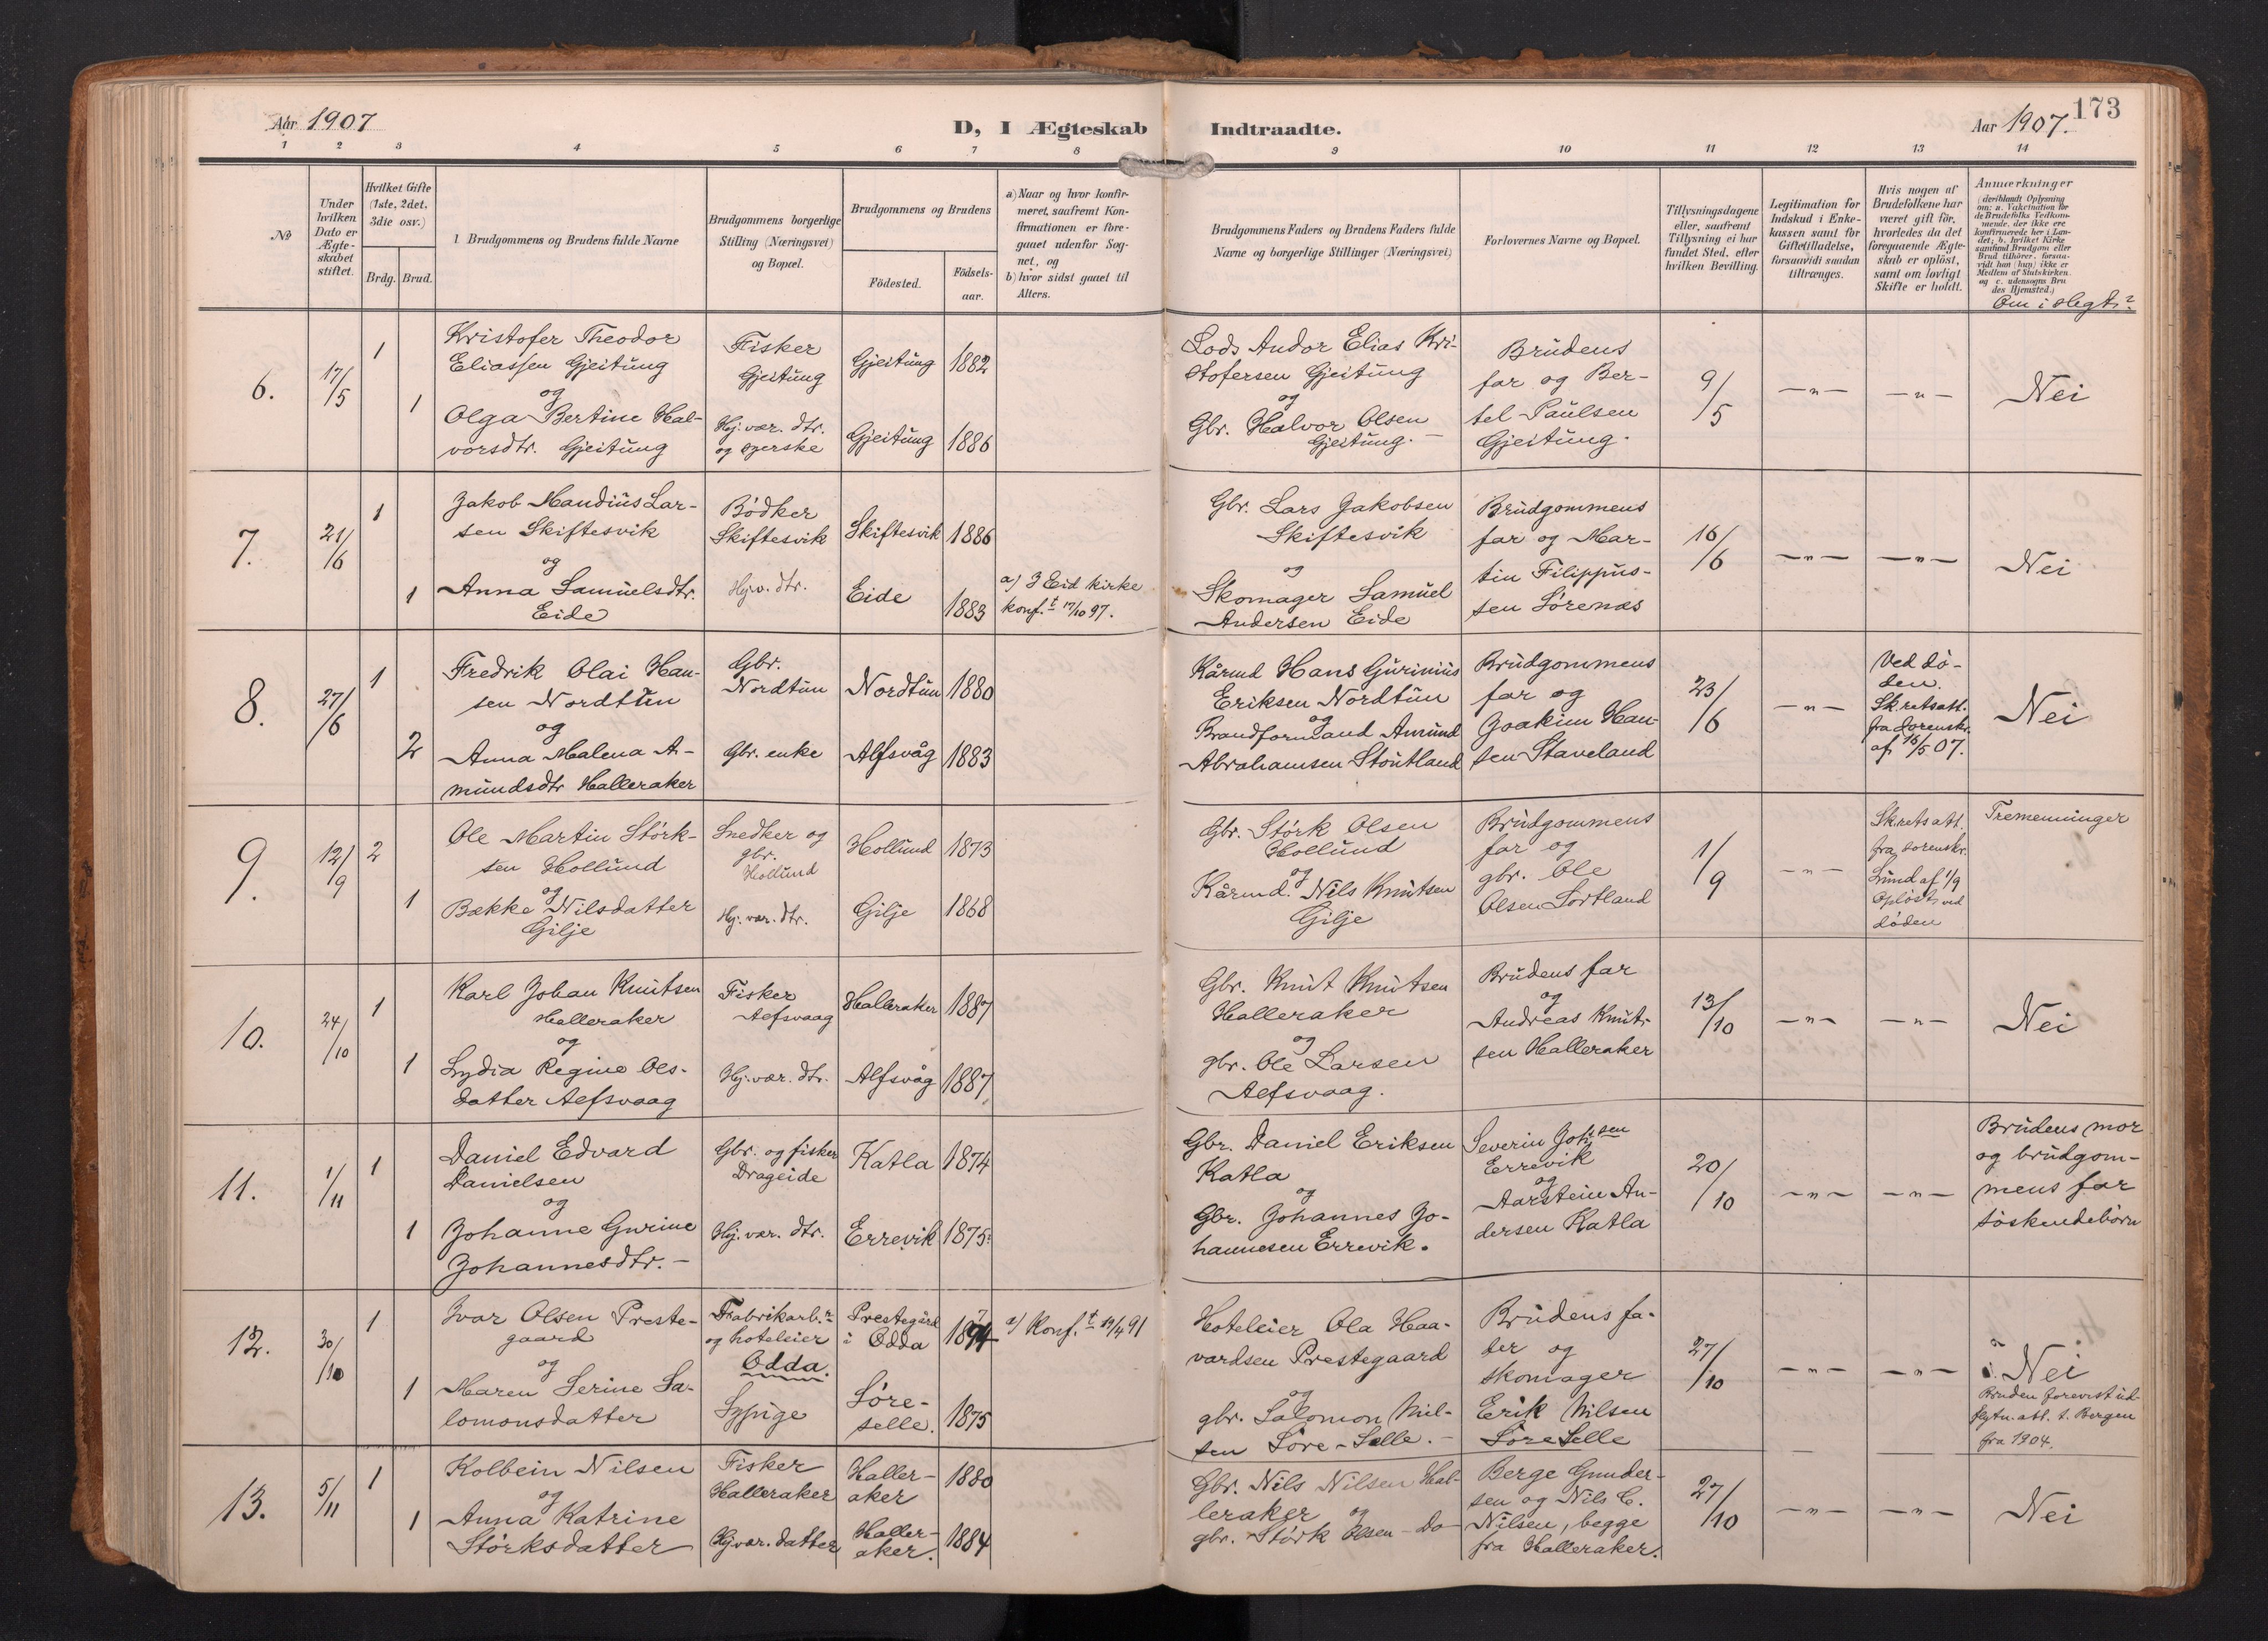 173
Aar 1907
D, I Ægteskab Indtraadte.
Aar 1907.
1 2 3 4 5 6 7 8 9 10 11 12 13 14
No
Under
hvilken
Dato er
Ægte-
skabet
stiftet.
Hvilket Gifte
(1ste, 2det,
3die osv.)
Brdg. Brud.
Brudgommens og Brudens fulde Navne
Brudgommens borgerlige
Stilling (Næringsvei)
og Bopæl.
Brudgommens og Brudens
Födested.
Födsels-
aar.
a) Naar og hvor konfir-
meret, saafremt Kon-
firmationen er fore-
gaaet udenfor Sog-
net, og
b) hvor sidst gaaet til
Alters.
Brudgommens Faders og Brudens Faders fulde
Navne og borgerlige Stillinger (Næringsvei)
Forlovernes Navne og Bopæl.
Tillysningsdagene
eller, saafremt
Tillysning ei har
fundet Sted, efter
hvilken Bevilling.
Legitimation for
Indskud i Enke-
kassen samt for
Giftetilladelse,
forsaavidt saadan
tiltrænges.
Hvis nogen af
Brudefolkene har
været gift för,
hvorledes da det
foregaaende Ægte-
skab er oplöst,
samt om lovligt
Skifte er holdt.
Anmærkninger
(deriblandt Oplysning
om: a. Vakcination for
de Brudefolks Vedkom-
mende, der ikke ere
konfirmerede her i Lan-
det; b. hvilket Kirke
samfund Brudgom eller
Brud tilhörer, forsaa-
vidt han (hun) ikke er
Medlem af Statskirken.
og c. udensogns Bru
des Hjemsted.)
Om i slegt?
6.
17/5
1
Kristofer Theodor
Eliassen Gjeitung
og
1
Olga Bertine Hal-
vorsdtr. Gjeitung
Fisker
Gjeitung
Hj. vær. dtr.
og syerske
Gjeitung 1882
Gjeitung 1886
Lods Andor Elias Kri-
stofersen Gjeitung
og
Gbr. Halvor Olsen
Gjeitung. –
Brudens
far og Ber-
tel Paulsen
Gjeitung.
9/5
— " —
— " —
Nei
7.
21/6
1
Jakob Mandius Lar-
sen Skiftesvik
og
1
Anna Samuelsdtr.
Eide
Bödker
Skiftesvik
Hj.v. dtr.
Skiftesvik 1886
Eide 1883
a) I Eid kirke
konf.t 17/10 97.
Gbr. Lars Jakobsen
Skiftesvik
og
Skomager Samuel
Andersen Eide
Brudgommens
far og Mar-
tin Filippus-
sen Sörenæs
16/6
— " —
— " —
Nei
8.
27/6
1
Fredrik Olai Han-
sen Nordtun
og
2
Anna Malena A-
mundsdtr Halleraker
Gbr.
Nordtun
Gbr. enke
Nordtun 1880
Alfsvåg 1883
Kårmd Hans Gurinius
Eriksen Nordtun
og
Brandformand Amund
Abrahamsen Stoutland
Brudgommens
far og
Joakim Han-
sen Staveland
23/6
— " —
Ved dö-
den.
Sk.retsatt.
fra Sorenskr.
af 16/5 07.
Nei
9.
12/9
2
Ole Martin Störk-
sen Hollund
og
1
Bække Nilsdatter
Gilje
Snedker og
gbr.
Hollund
Hj. vær. dtr.
Hollund 1873
Gilje 1868
Gbr. Störk Olsen
Hollund
og
Kårmd. Nils Knutsen
Gilje
Brudgommens
far og
gbr. Ole
Olsen Sortland
1/9
— " —
Sk.retsatt.
fra sorenskr.
Lund af 1/9
Oplöst ved
döden
Tremenninger
10.
24/10
1
Karl Johan Knutsen
Halleraker
og
1
Lydia Regine Ols-
datter Alfsvaag
Fisker
Alfsvaag
Hj. vær. dtr.
Halleraker 1887
Alfsvåg 1887
Gbr. Knut Knutsen
Halleraker
og
gbr. Ole Larsen
Alfsvaag.
Brudens far
og
Andreas Knut-
sen Halleraker
13/10
— " —
— " —
Nei
11.
1/11
1
Daniel Edvard
Danielsen
og
1
Johanne Gurine
Johannesdtr. –
Gbr. og fisker
Drageide
Hj. vær. dtr.
Katla 1874
Errevik 1875
Gbr. Daniel Eriksen
Katla
og
Gbr. Johannes Jo-
hannesen Errevik.
Severin Joh.sen
Errevik
og
Aarstein An-
dersen Katla
20/10
— " —
— " —
Brudens mor
og brudgom-
mens far
söskendebörn
12.
30/10
1
Ivar Olsen Preste-
gaard
og
1
Maren Serine Sa-
lomonsdatter
Fabrikarb.r
og hoteleier
Odda.
Sypige
Prestegård
i Odda
Söre-
selle. 1875
a) Konf.t 19/4 91
Hoteleier Ola Haa-
vardsen Prestegaard
og
gbr. Salomon Niel-
sen Söre-Selle. –
Brudens fa-
der og
skomager
Erik Nilsen
Söre Selle
27/10
— " —
— " —
Nei
Bruden forevist ud-
flytn. att. t. Bergen
fra 1904.
13.
5/11
1
Kolbein Nilsen
og
1
Anna Katrine
Störksdatter
Fisker
Halleraker
Hj.vær. datter
Haller-
aker 1880
Haller-
aker. 1884
Gbr. Nils Nilsen Hal-
leraker
og
gbr. Störk Olsen – Do –
Berge Gunder-
sen og Nils C.
Nilsen, begge
fra Halleraker.
27/10
— " —
— " —
Nei